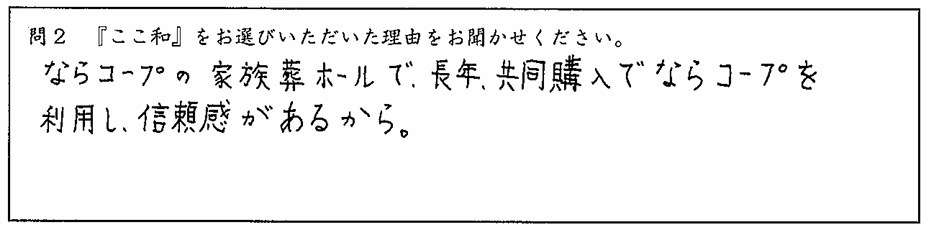 問2　『ここ和』をお選びいただいた理由をお聞かせください。
ならコープの家族葬ホールで、長年、共同購入でならコープを
利用し、信頼感があるから。